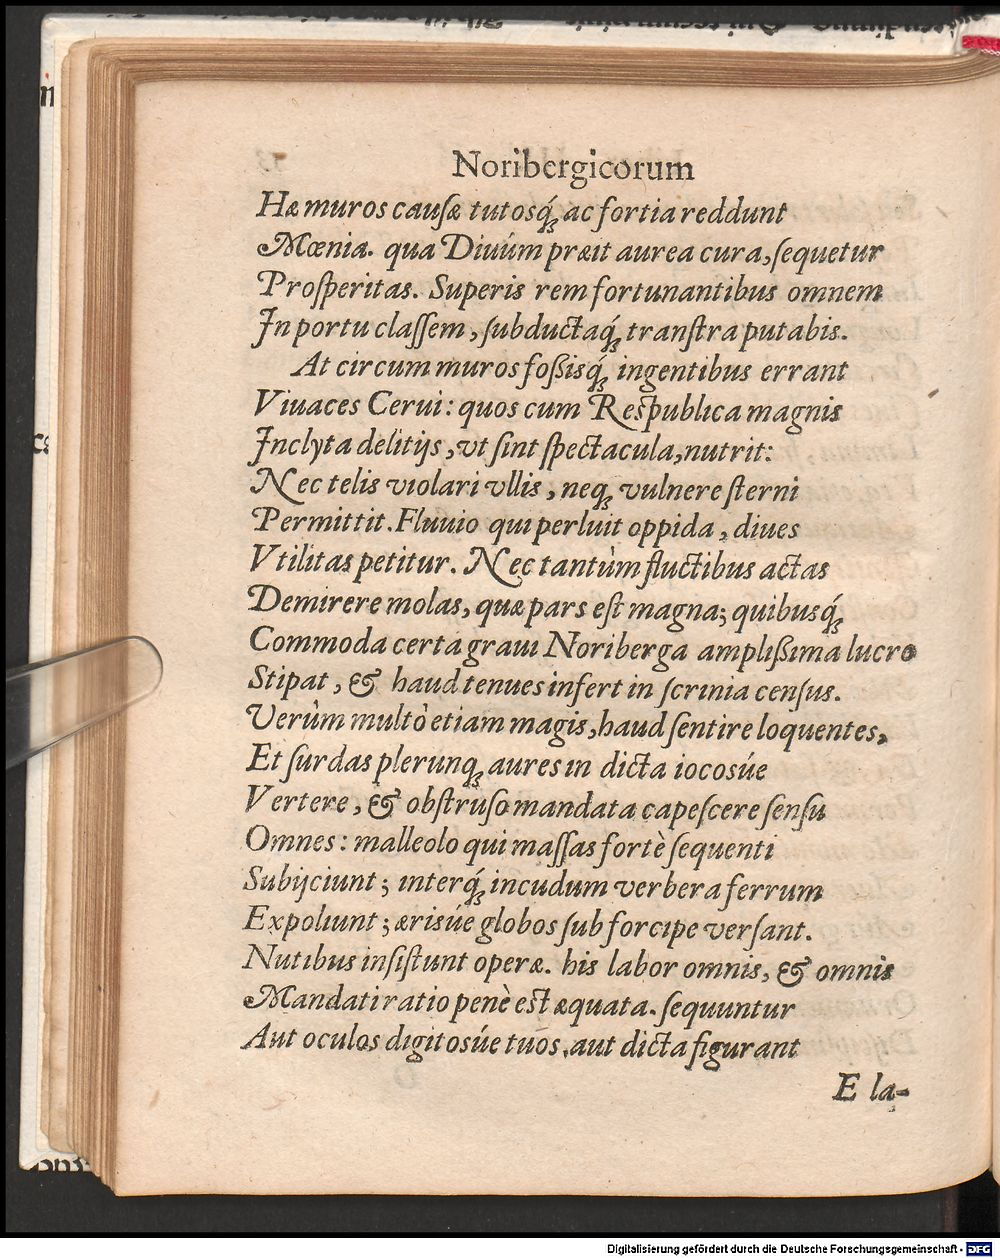 Noribergicorum
Hæ muros causæ tutosq́; ac fortia reddunt
Mœnia. qua Diuúm præit aurea cura, sequetur
Prosperitas. Superis rem fortunantibus omnem
In portu classem, subductaq́; transtra putabis.
At circum muros fossisq́; ingentibus errant
Viuaces Cerui: quos cum Respublica magnis
Inclyta delitijs, vt sint spectacula, nutrit:
Nec telis violari vllis, neq; vulnere sterni
Permittit. Fluuio qui perluit oppida, diues
Vtilitas petitur. Nec tantùm fluctibus actas
Demirere molas, quæ pars est magna; quibusq́;
Commoda certa graui Noriberga amplissima lucro
Stipat, & haud tenues infert in scrinia census.
Verùm multò etiam magis, haud sentire loquentes,
Et surdas plerunq; aures in dicta iocosúe
Vertere, & obstruso mandata capescere sensu
Omnes: malleolo qui massas fortè sequenti
Subijciunt; interq́; incudum verbera ferrum
Expoliunt; ærisúe globos sub forcipe versant.
Nutibus insistunt operæ. his labor omnis, & omnis
Mandati ratio penè est æquata. sequuntur
Aut oculos digitosúe tuos, aut dicta figurant
E la-
Digitalisierung gefördert durch die Deutsche Forschungsgemeinschaft - DFG